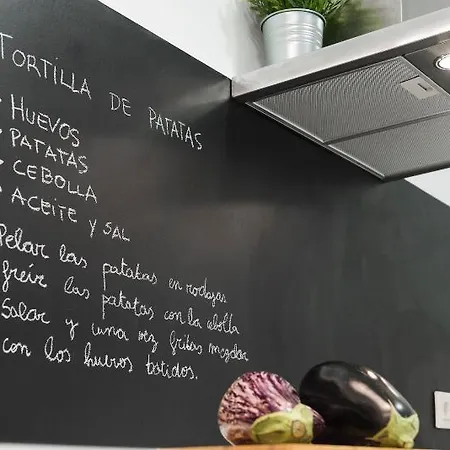 TORTILLA DE PATATAS
• HUEVOS
• PATATAS
• CEBOLLA
• ACEITE Y SAL
Pelar las patatas en rodajas
freír las patatas con la cebolla
Salar y una vez fritas mezclar
con los huevos batidos.